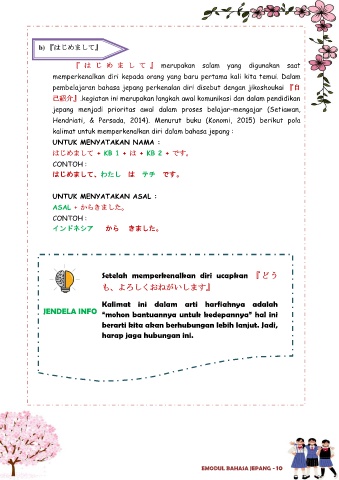 b) 『はじめまして』
『はじめまして』 merupakan salam yang digunakan saat
memperkenalkan diri kepada orang yang baru pertama kali kita temui. Dalam
pembelajaran bahasa jepang perkenalan diri disebut dengan jikoshoukai 『自
己紹介』.kegiatan ini merupakan langkah awal komunikasi dan dalam pendidikan
jepang menjadi prioritas awal dalam proses belajar-mengajar (Setiawan,
Hendriati, & Persada, 2014). Menurut buku (Konomi, 2015) berikut pola
kalimat untuk memperkenalkan diri dalam bahasa jepang :
UNTUK MENYATAKAN NAMA :
はじめまして + KB 1 + は + KB 2 + です。
CONTOH :
はじめまして、わたし は テチ です。
UNTUK MENYATAKAN ASAL :
ASAL + からきました。
CONTOH :
インドネシア から きました。
Setelah memperkenalkan diri ucapkan 『どう
も、よろしくおねがいします』
JENDELA INFO
Kalimat ini dalam arti harfiahnya adalah
"mohon bantuannya untuk kedepannya" hal ini
berarti kita akan berhubungan lebih lanjut. Jadi,
harap jaga hubungan ini.
EMODUL BAHASA JEPANG - 10